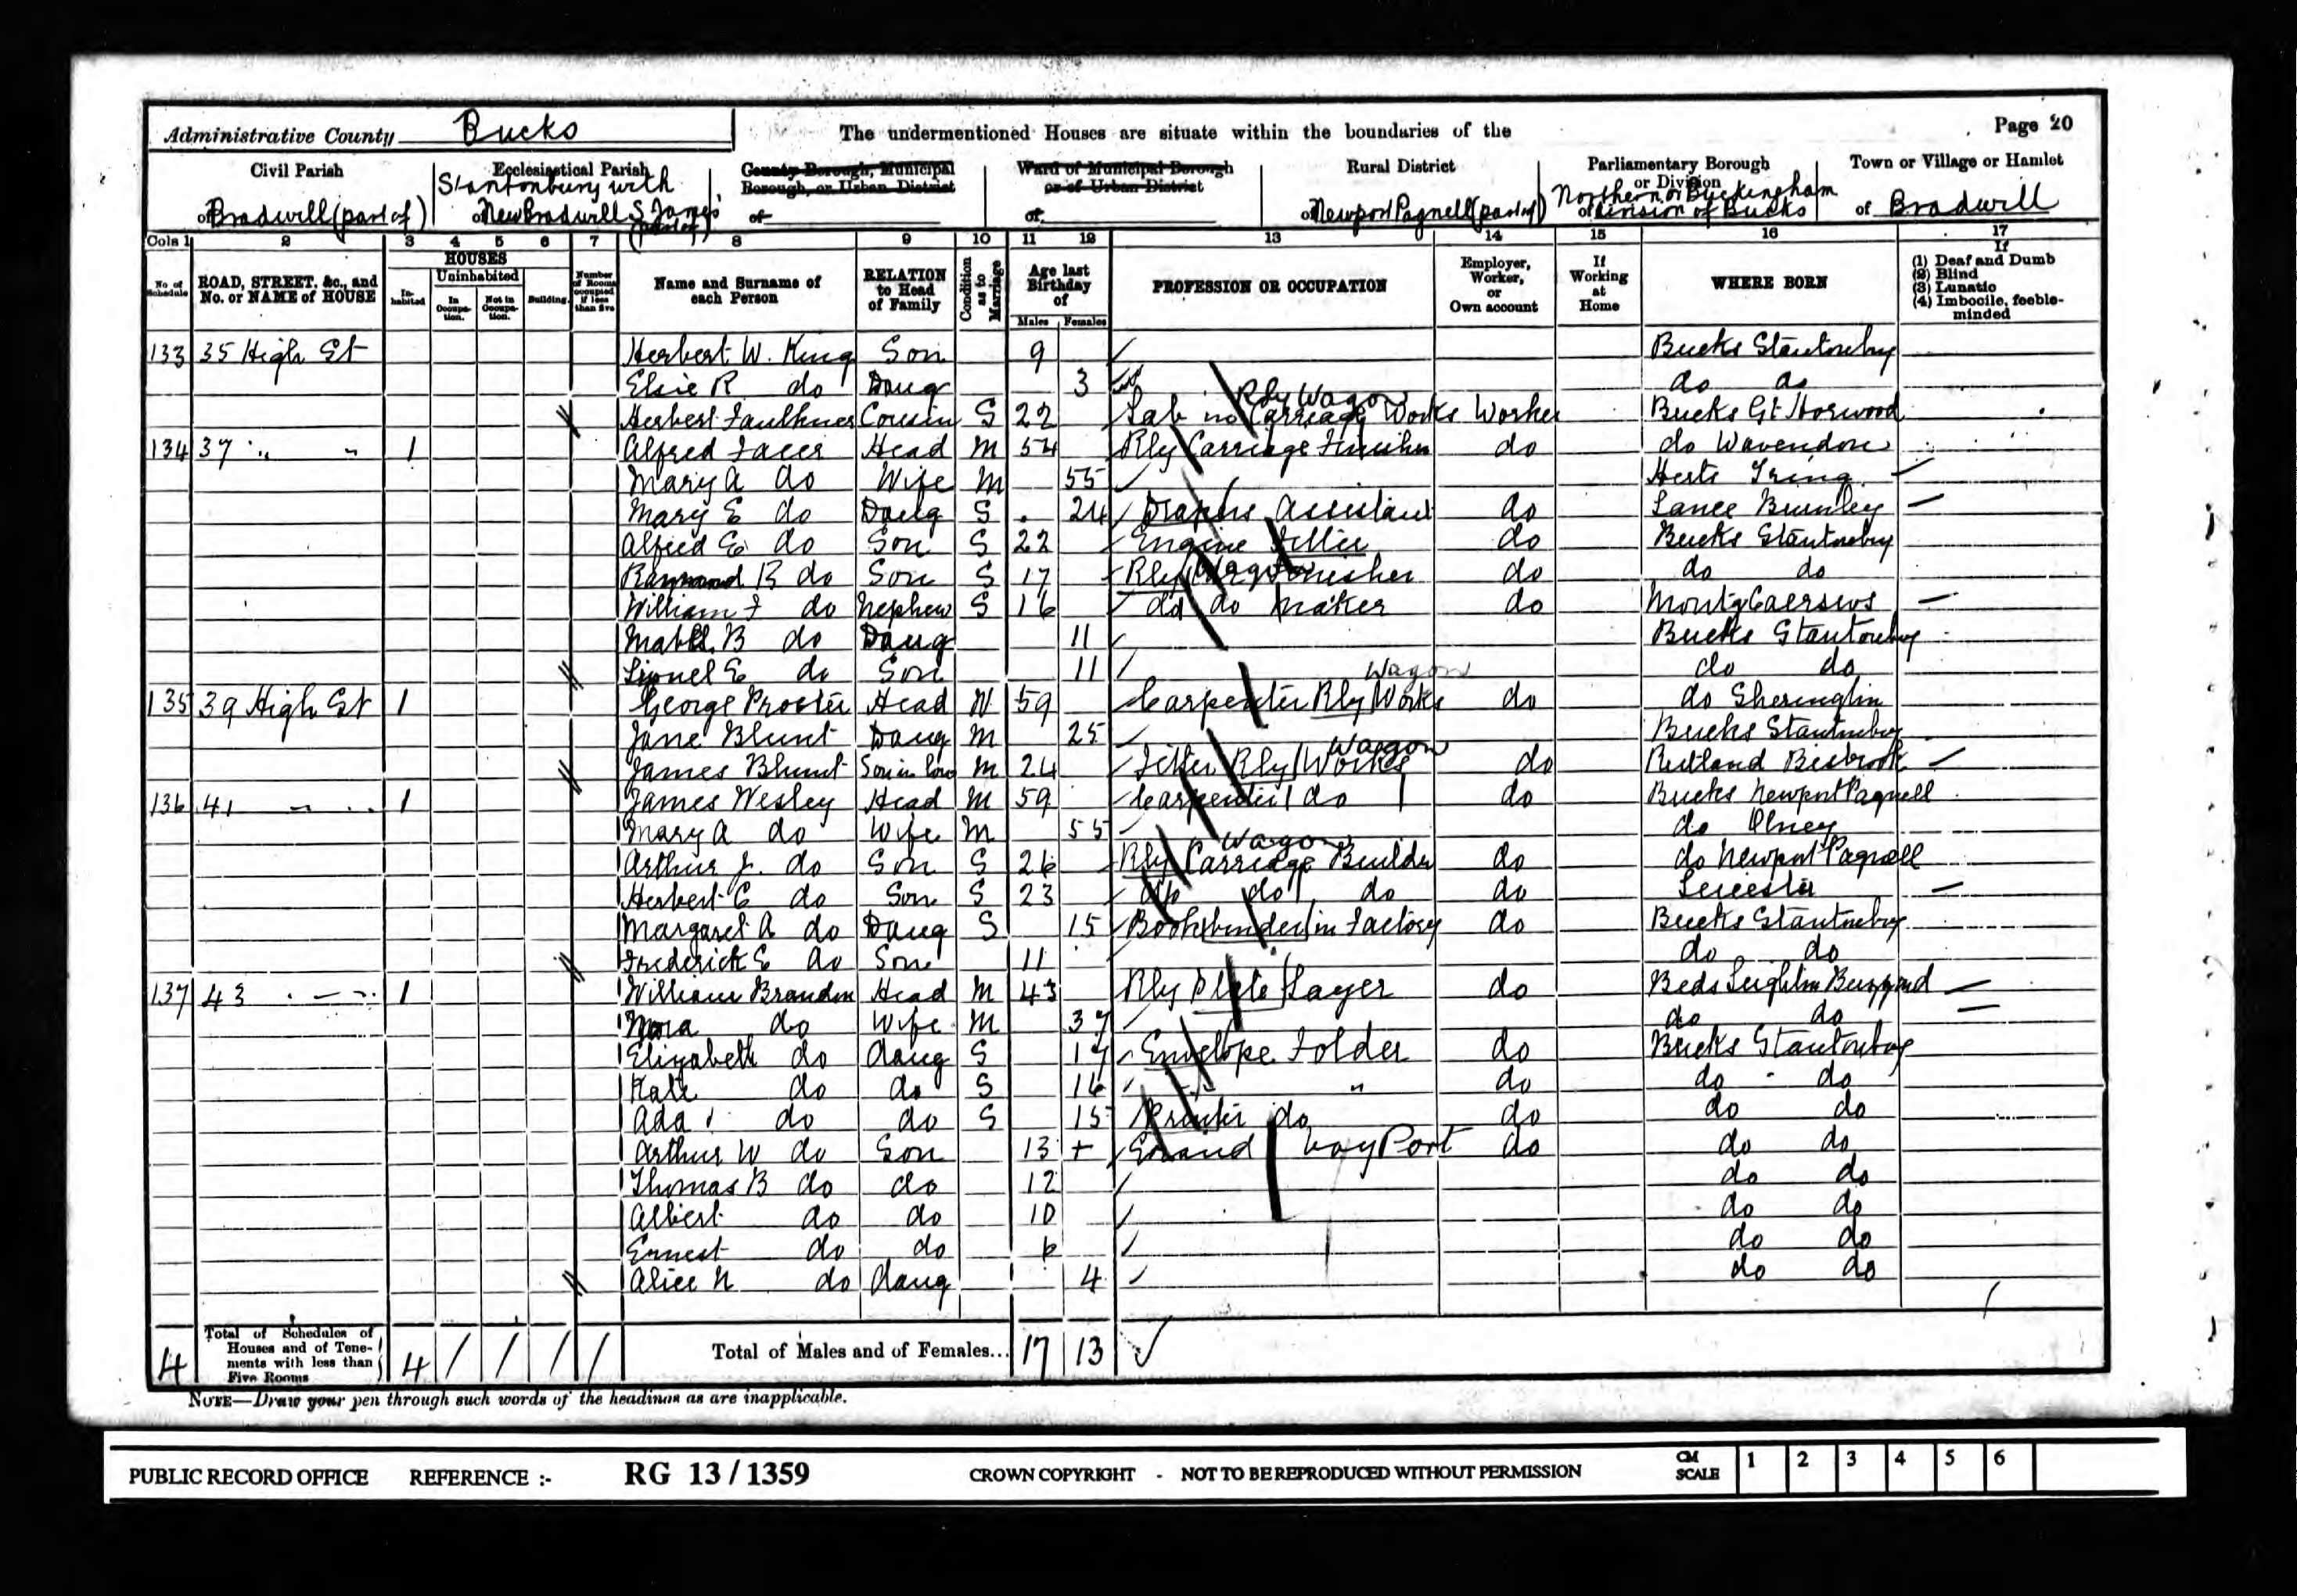 Administrative County Bucks
The undermentioned Houses are situate within the boundaries of the
Page 20
Civil Parish
of Bradwill (part of)
Ecclesiastical Parish
Stantonbury with
of New Bradwill S. James
(part of)
County Borough, Municipal
Borough, or Urban District
of
Ward of Municipal Borough
or of Urban District
of
Rural District
of Newport Pagnell (part of)
Parliamentary Borough
or Division
Northern or Buckingham
of Division of Bucks
Town or Village or Hamlet
of Bradwill
Cols 1 2 3 4 5 6 7 8 9 10 11 12 13 14 15 16 17
No of Schedule
ROAD, STREET, &c., and No. or NAME of HOUSE
HOUSES
Inhabited
Uninhabited
In Occupation.
Not in Occupation.
Building.
Number of Rooms occupied if less than five
Name and Surname of each Person
RELATION to Head of Family
Condition as to Marriage
Age last Birthday of
Males Females
PROFESSION OR OCCUPATION
Employer, Worker, or Own account
If Working at Home
WHERE BORN
If
(1) Deaf and Dumb
(2) Blind
(3) Lunatic
(4) Imbecile, feeble-minded
133 35 High St Herbert W. King Son 9 Bucks Stantonbury
Elsie R do Daug 3 do do
Herbert Faulkner Cousin S 22 Lab in Rly Wagon Carriage Works Worker Bucks Gt Horwood
134 37 " " 1 Alfred Facer Head M 54 Rly Carriage Finisher do do Wavendon
Mary A do Wife M 55 Herts Tring
Mary E do Daug S 24 Drapers Assistant do Lancs Burnley
Alfred E do Son S 22 Engine Fitter do Bucks Stantonbury
Raymond R do Son S 17 Rly Wagon Finisher do do do
William F do Nephew S 16 do do Maker do Montg Caersws
Mabel B do Daug 11 Bucks Stantonbury
Lionel E do Son 11 do do
135 39 High St 1 George Procter Head W 59 Carpenter Rly Wagon Works do do Sherington
Jane Blunt Daug M 25 Bucks Stantonbury
James Blunt Son in law M 24 Fitter Rly Wagon Works do Rutland Bisbrook
136 41 " " 1 James Wesley Head M 59 Carpenter do do Bucks Newport Pagnell
Mary A do Wife M 55 do Olney
Arthur J. do Son S 26 Rly Wagon Carriage Builder do do Newport Pagnell
Herbert C do Son S 23 do do do do Leicester
Margaret A do Daug S 15 Bookbinder in Factory do Bucks Stantonbury
Frederick E do Son 11 do do
137 43 " " 1 William Brandon Head M 43 Rly Plate Layer do Beds Leighton Buzzard
do Wife M 37 do do
Elizabeth do daug S 17 Envelope Folder do Bucks Stantonbury
Kate do do S 16 " " do do do
Ada do do S 15 Printer do do do do
Arthur W do Son 13 + Errand boy Port do do do
Thomas B do do 12 do do
Albert do do 10 do do
Ernest do do 6 do do
Alice N do daug 4 do do
4 Total of Schedules of Houses and of Tenements with less than Five Rooms 4 / / / / Total of Males and of Females... 17 13
NOTE—Draw your pen through such words of the headings as are inapplicable.
PUBLIC RECORD OFFICE REFERENCE :- RG 13/1359 CROWN COPYRIGHT - NOT TO BE REPRODUCED WITHOUT PERMISSION CM SCALE 1 2 3 4 5 6